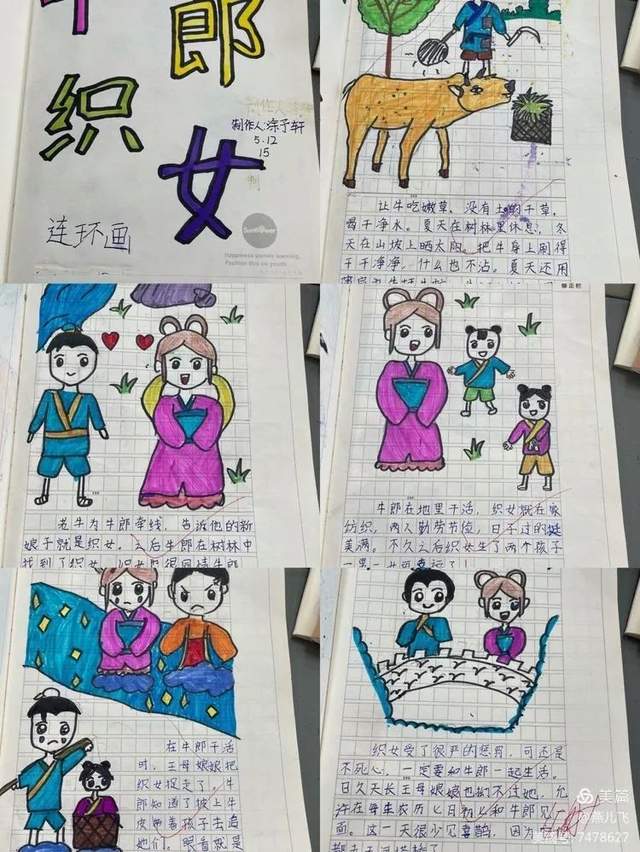 牛郎
织女
制作人:涂予轩
5.12
15
连环画
Sunflower
Happiness paves learning,
让牛吃嫩草,没有土的干草,
喝干净水。夏天在树林里休息,冬
天在山坡上晒太阳。把牛身上刷得
干干净净,什么也不沾。夏天还用
老牛为牛郎牵线,告诉他的新
娘子就是织女。之后牛郎在树林中
找到了织女
牛郎在地里干活,织女就在家
纺织。两人勤劳节俭,日子过的挺
美满。不久之后织女生了两个孩子
一男一女可幸福了!
在牛郎干活
时,王母娘娘把
织女捉走了。牛
郎知道了披上牛
皮 着孩子去追
她们。眼看就是
织女受了很严的惩罚,可还是
不死心,一定要和牛郎一起生活。
日久天长王母娘娘也拗不过她,允
许在每年农历七月初七和牛郎见
面。这一天很少见喜鹊,因为
都去天河搭桥了
美篇
燕儿飞
美篇号:7478627